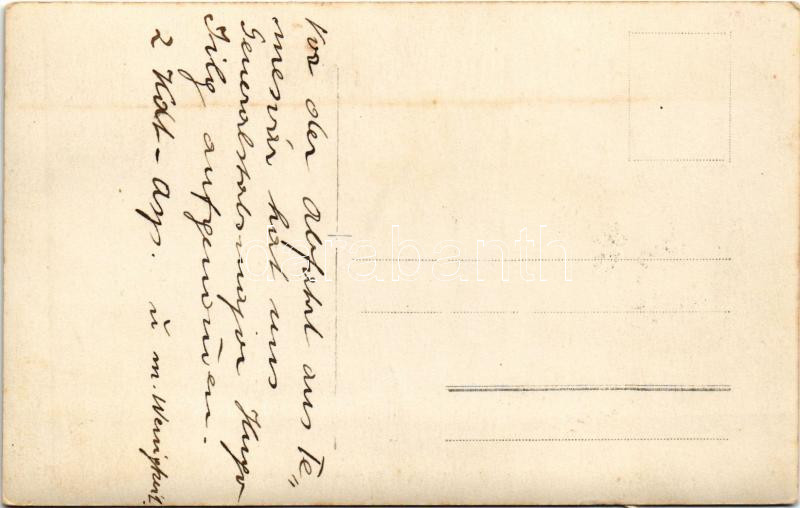 Vor der Abfahrt aus Te„
mesvár hat uns
Generalstabsmajor Hugo
Jilg aufgenom̄en.
2 Kdt-Asp. ū m. Wenigkeit.
darabanth